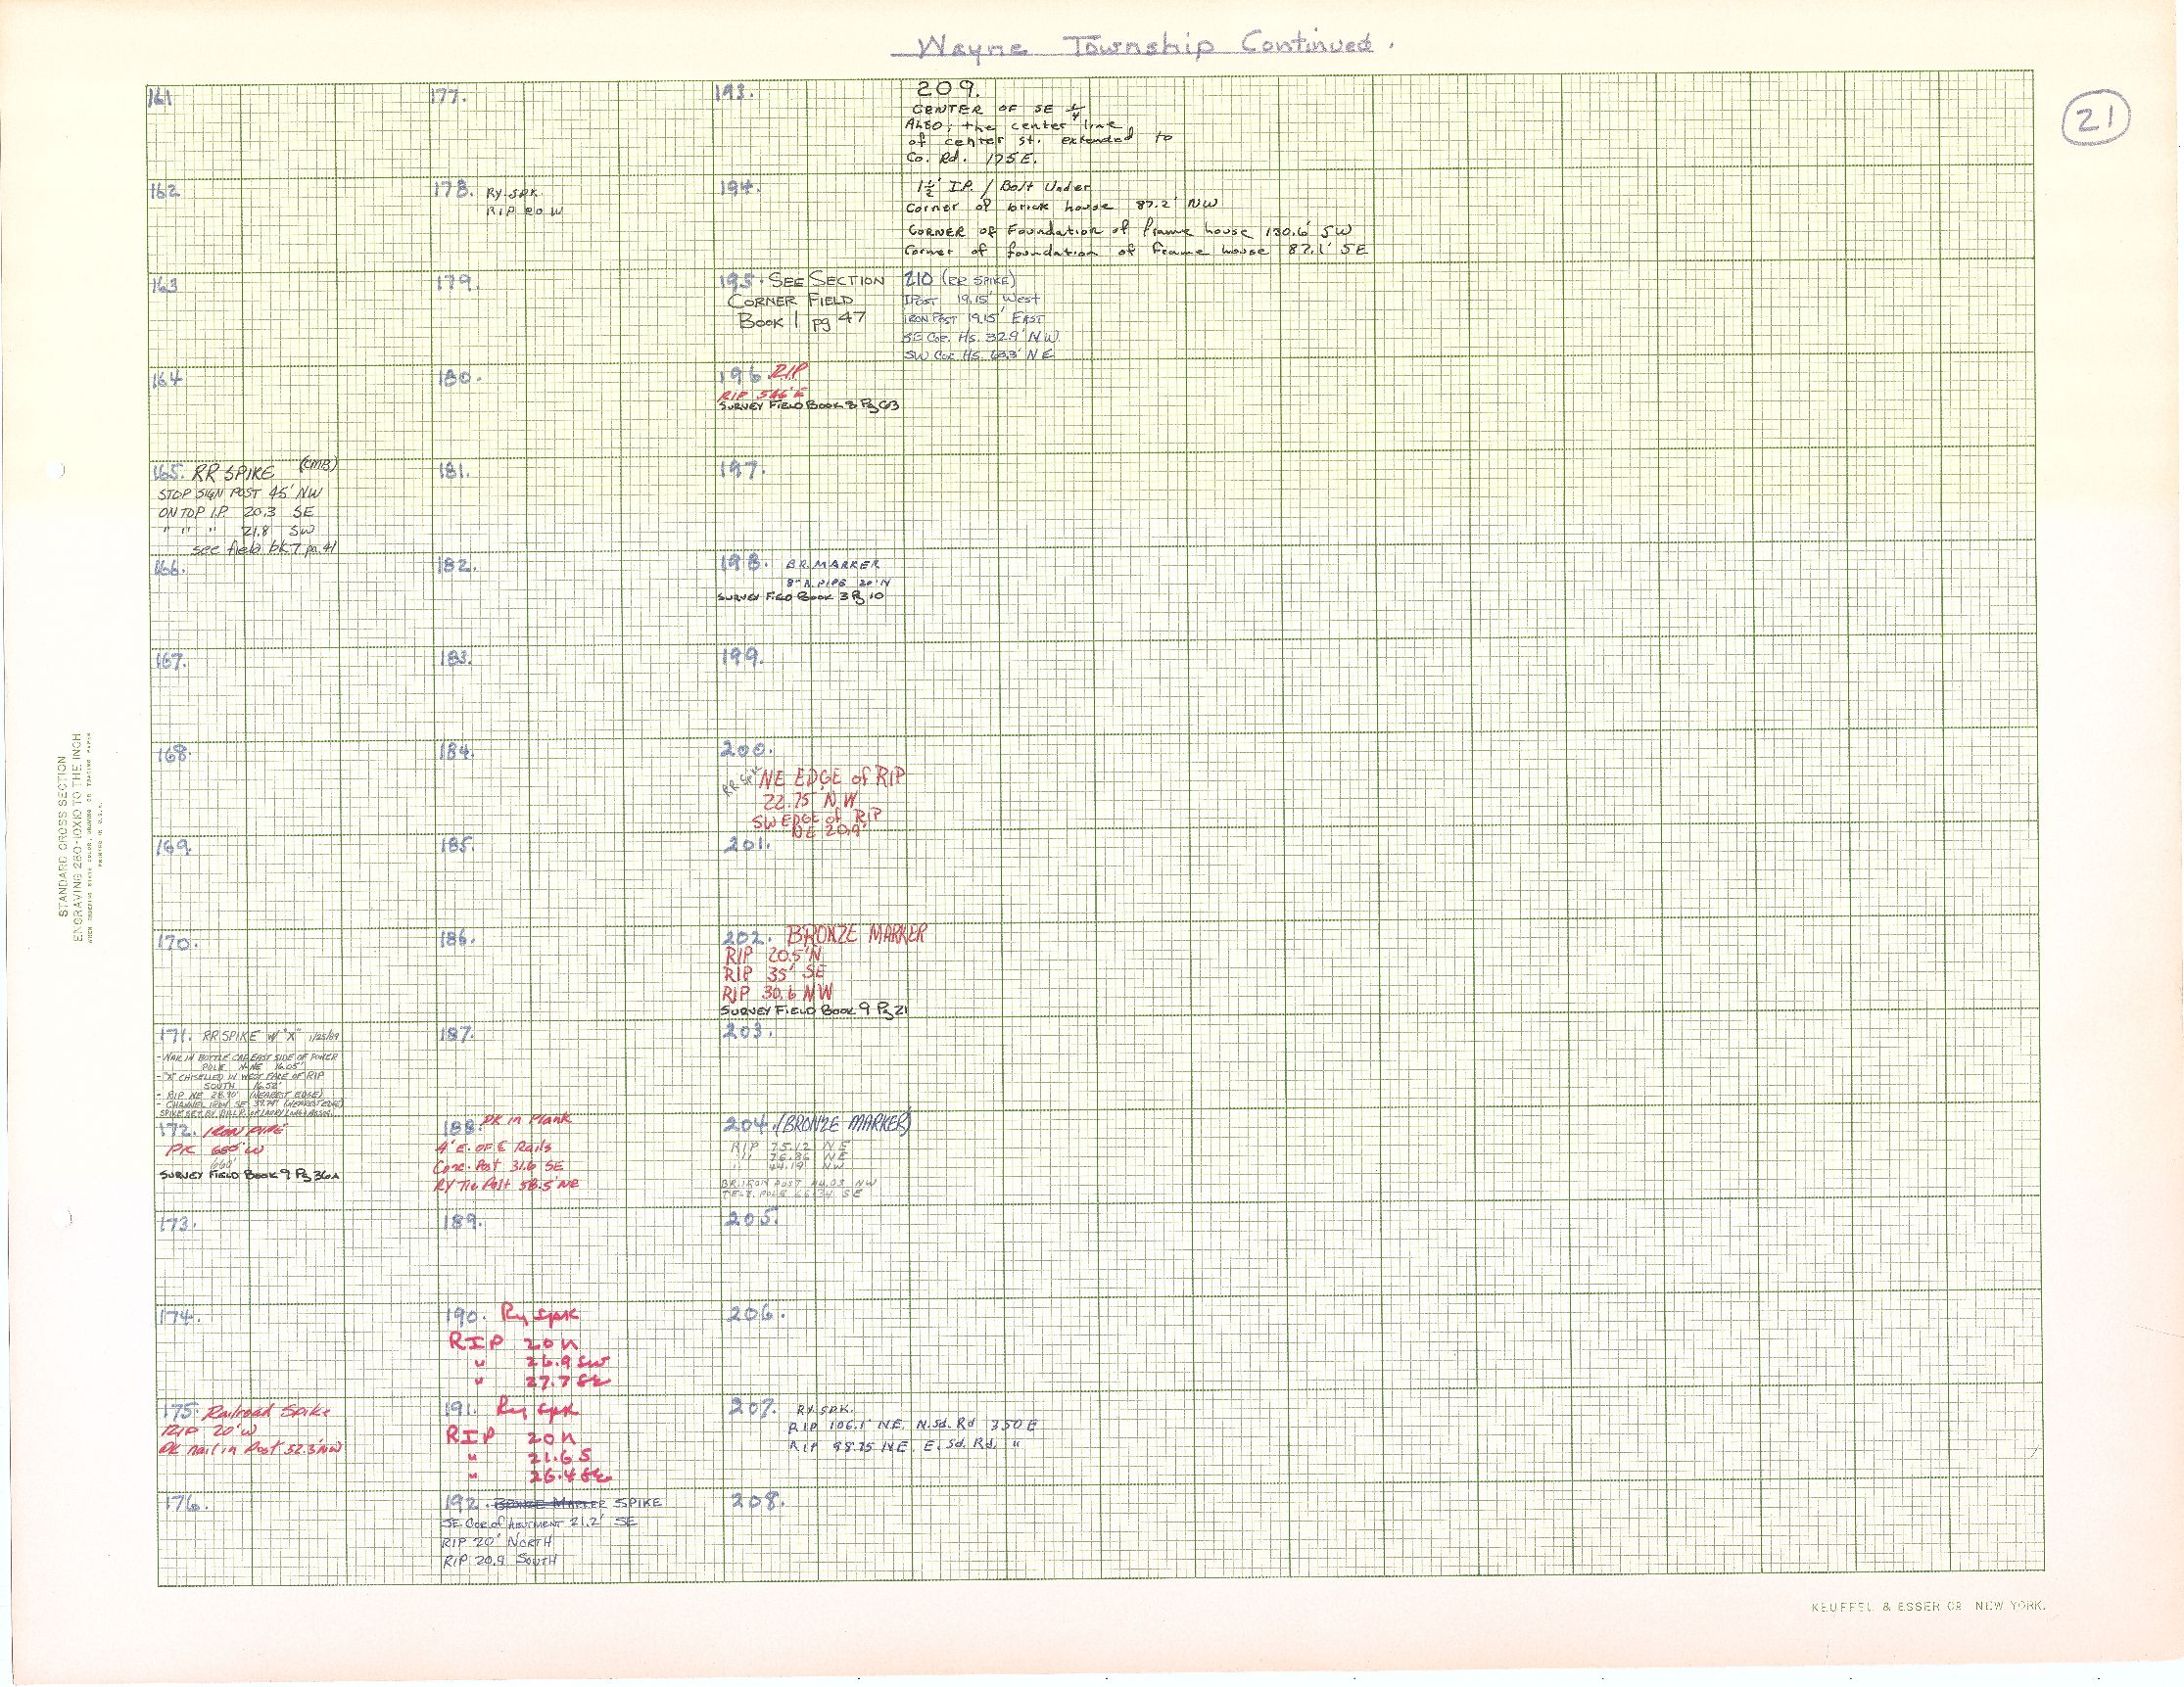 Wayne Township Continued.
21
161
162
163
164
165. RR SPIKE (CMB)
STOP SIGN POST 45' NW
ON TOP I.P. 20.3 SE
" " " 21.8 SW
see field bk 7 pg. 41
166.
167.
168.
169.
170.
171. RR SPIKE W/ "X" 1/25/89
- NAIL IN BOTTLE CAP EAST SIDE OF POWER
POLE N-NE 16.05'
- "X" CHISELLED IN WEST FACE OF RIP
SOUTH 16.52'
- RIP NE 28.90' (NEAREST EDGE)
- CHANNEL IRON SE (NEAREST EDGE)
SPIKE SET BY BILL R.
172. IRON PIPE
PK 660' W
660'
SURVEY FIELD BOOK 9 Pg 36A
173.
174.
175. Railroad Spike
RIP 20' W
PK nail in Post 52.3' NW
176.
177.
178. RY. SPK.
RIP 20 W
179.
180.
181.
182.
183.
184.
185.
186.
187.
188. PK in Plank
4' E. OF E Rails
Conc. Post 31.6 SE
RY Tie Post 58.5' NE
189.
190. Ry spk
RIP 20 N
" 26.9 SW
" 27.7 SE
191. Ry spk
RIP 20 N
" 21.6 S
" 26.4 SE
192. BRONZE MARKER SPIKE
SE. COR of ABUTMENT 21.2' SE
RIP 20' NORTH
RIP 20.9 SOUTH
193.
194.
195. SEE SECTION
CORNER FIELD
BOOK 1 pg 47
196. RIP
RIP 546' E
SURVEY FIELD BOOK 8 Pg 63
197.
198. BR. MARKER
8" N. PIPE 20' N
SURVEY FIELD BOOK 3 Pg 10
199.
200.
RR Spike NE EDGE of RIP
22.75' N.W
SW EDGE of RIP
NE 20.9'
201.
202. BRONZE MARKER
RIP 20.5' N
RIP 35' SE
RIP 30.6 NW
SURVEY FIELD BOOK 9 Pg 21
203.
204. (BRONZE MARKER)
RIP 75.12 NE
" 76.86 NE
" 44.19 NW
BR. IRON POST 44.03 NW
TELE. POLE SE
205.
206.
207. RY. SPK.
RIP 106.1' NE. N. Sd. Rd 350 E
RIP 98.75 NE. E. Sd. Rd. "
208.
209.
CENTER OF SE 1/4
ALSO; the center line
of center st. extended to
Co. Rd. 175 E.
1 1/2" I.P. / Bolt Under
Corner of brick house 87.2' NW
CORNER OF Foundation of frame house 130.6' SW
Corner of foundation of frame house 87.1' SE
210 (RR SPIKE)
I Post 19.15' West
IRON POST 19.15' EAST
SE Cor. Hs. 32.9' N W
SW Cor Hs. 63.3' N E
STANDARD CROSS SECTION
ENGRAVING 260-10X10 TO THE INCH
KEUFFEL & ESSER CO. NEW YORK.